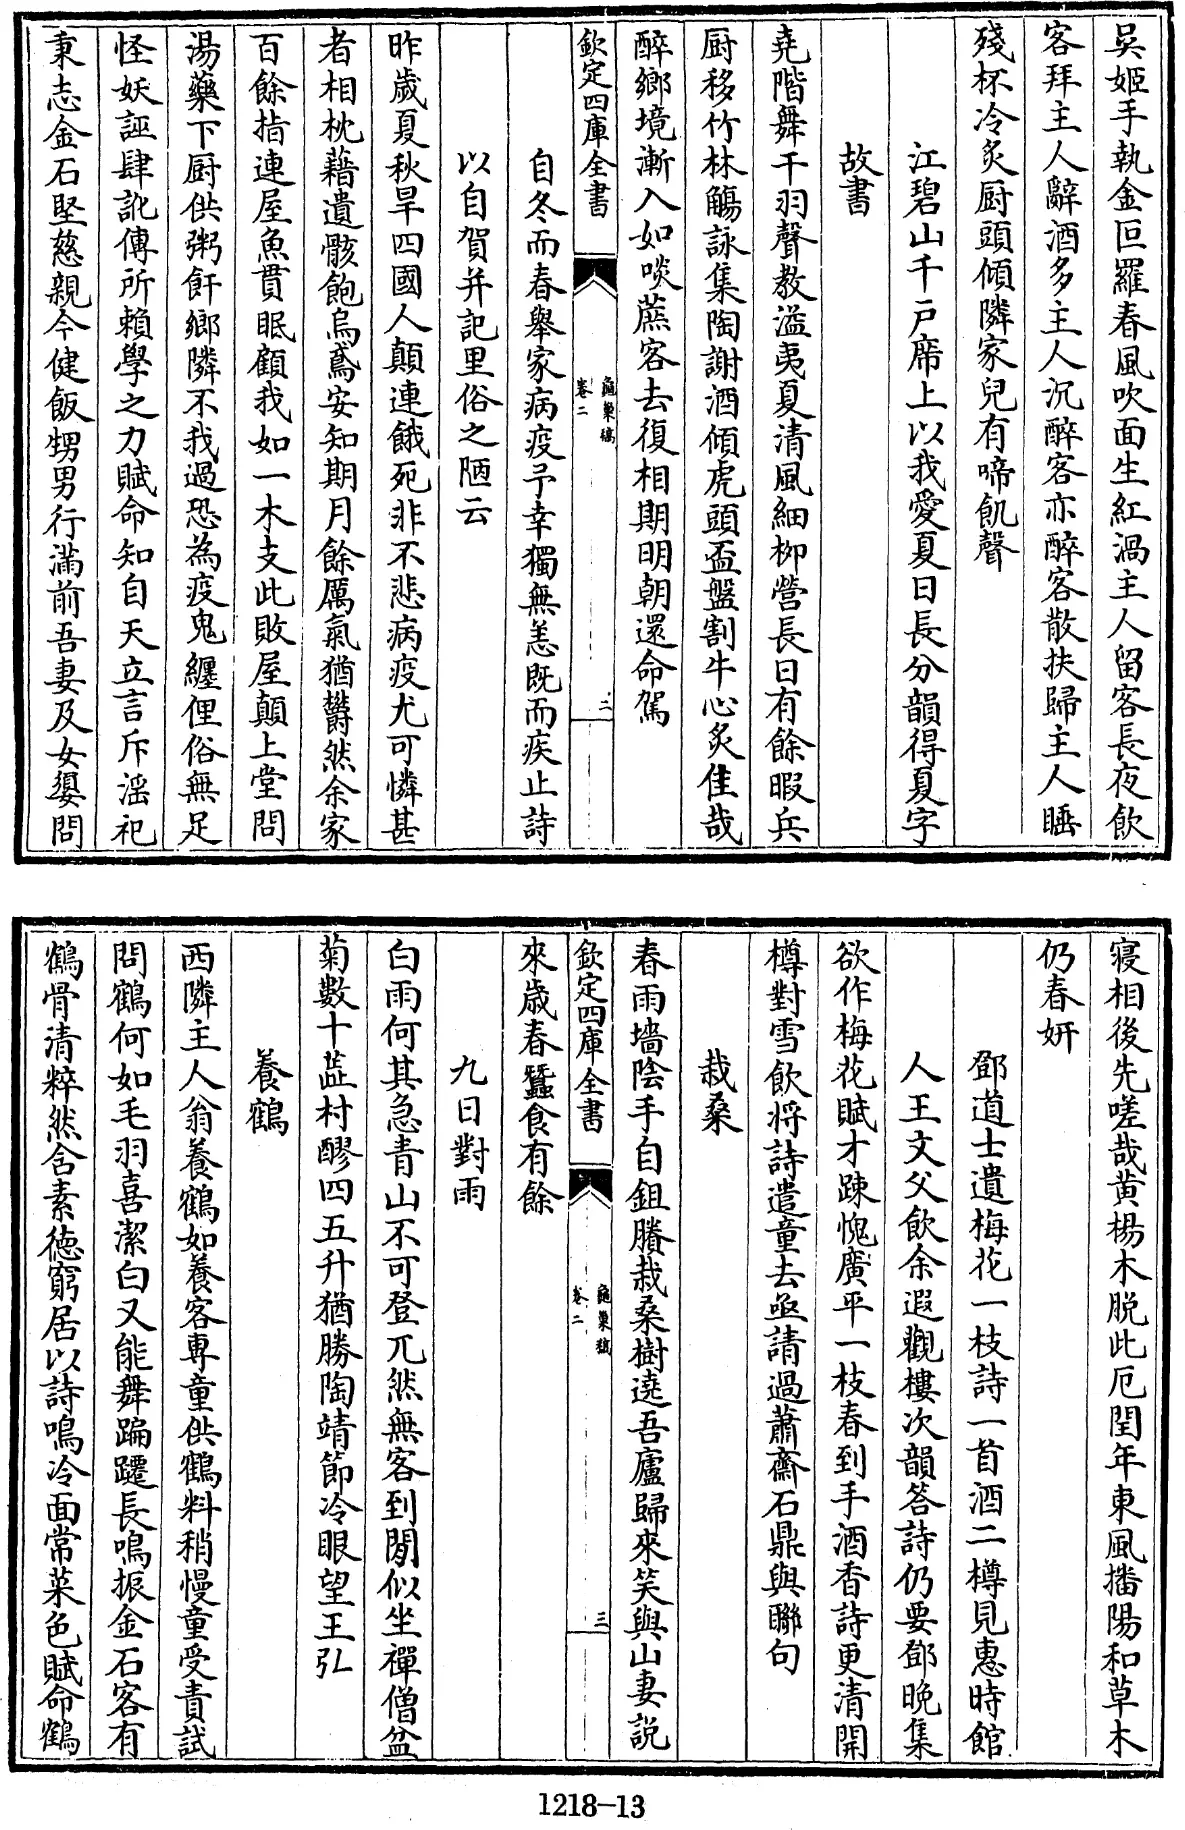 吳姬手執金叵羅春風吹面生紅渦主人留客長夜飲
客拜主人辭酒多主人沉醉客亦醉客散扶歸主人睡
殘杯冷炙厨頭傾隣家兒有啼飢聲
江碧山千戸席上以我愛夏日長分韻得夏字
故書
堯階舞干羽聲教溢夷夏清風細柳營長日有餘暇兵
厨移竹林觴詠集陶謝酒傾虎頭盃盤割牛心炙佳哉
醉鄉境漸入如啖蔗客去復相期明朝還命駕
欽定四庫全書
龜巢稿
卷二
二
自冬而春舉家病疫予幸獨無恙既而疾止詩
以自賀并記里俗之陋云
昨歲夏秋旱四國人顛連餓死非不悲病疫尤可憐甚
者相枕藉遺骸飽烏鳶安知期月餘厲氣猶欝然余家
百餘指連屋魚貫眠顧我如一木支此敗屋顛上堂問
湯藥下厨供粥飦鄉隣不我過恐為疫鬼纒俚俗無足
怪妖誣肆訛傳所賴學之力賦命知自天立言斥滛祀
秉志金石堅慈親今健飯甥男行滿前吾妻及女嬃問
寢相後先嗟哉黄楊木脱此厄閏年東風播陽和草木
仍春妍
鄧道士遺梅花一枝詩一首酒二樽見惠時館
人王文父飲余遐觀樓次韻答詩仍要鄧晚集
欲作梅花賦才踈愧廣平一枝春到手酒香詩更清開
樽對雪飲将詩遣童去亟請過蕭齋石鼎與聯句
栽桑
春雨墻陰手自鉏賸栽桑樹遶吾廬歸來笑與山妻説
欽定四庫全書
龜巢稿
卷二
三
來歲春蠶食有餘
九日對雨
白雨何其急青山不可登兀然無客到閒似坐禪僧盆
菊數十蕋村醪四五升猶勝陶靖節冷眼望王弘
養鶴
西隣主人翁養鶴如養客專童供鶴料稍慢童受責試
問鶴何如毛羽喜潔白又能舞蹁躚長鳴振金石客有
鶴骨清粹然含素徳窮居以詩鳴冷面常菜色賦命鶴
1218-13